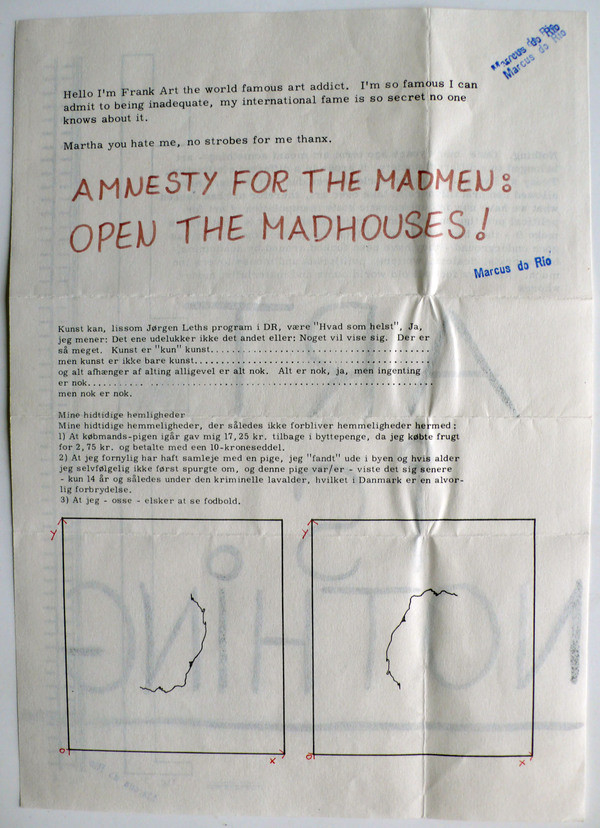 Marcus do Rio
Marcus do Rio
Hello I'm Frank Art the world famous art addict. I'm so famous I can
admit to being inadequate, my international fame is so secret no one
knows about it.
Martha you hate me, no strobes for me thanx.
AMNESTY FOR THE MADMEN:
OPEN THE MADHOUSES!
Marcus do Rio
Kunst kan, lissom Jørgen Leths program i DR, være "Hvad som helst", Ja,
jeg mener: Det ene udelukker ikke det andet eller: Noget vil vise sig. Der er
så meget. Kunst er "kun" kunst........................................
men kunst er ikke bare kunst...........................................
og alt afhænger af alting alligevel er alt nok. Alt er nok, ja, men ingenting
er nok.......... .....................................................
men nok er nok.
Mine hidtidige hemligheder
Mine hidtidige hemmeligheder, der således ikke forbliver hemmeligheder hermed:
1) At købmands-pigen igår gav mig 17,25 kr. tilbage i byttepenge, da jeg købte frugt
for 2,75 kr. og betalte med en 10-kroneseddel.
2) At jeg fornylig har haft samleje med en pige, jeg "fandt" ude i byen og hvis alder
jeg selvfølgelig ikke først spurgte om, og denne pige var/er - viste det sig senere
- kun 14 år og således under den kriminelle lavalder, hvilket i Danmark er en alvor-
lig forbrydelse.
3) At jeg - osse - elsker at se fodbold.
y
o
x
y
o
x
ART
IS
NOTHING